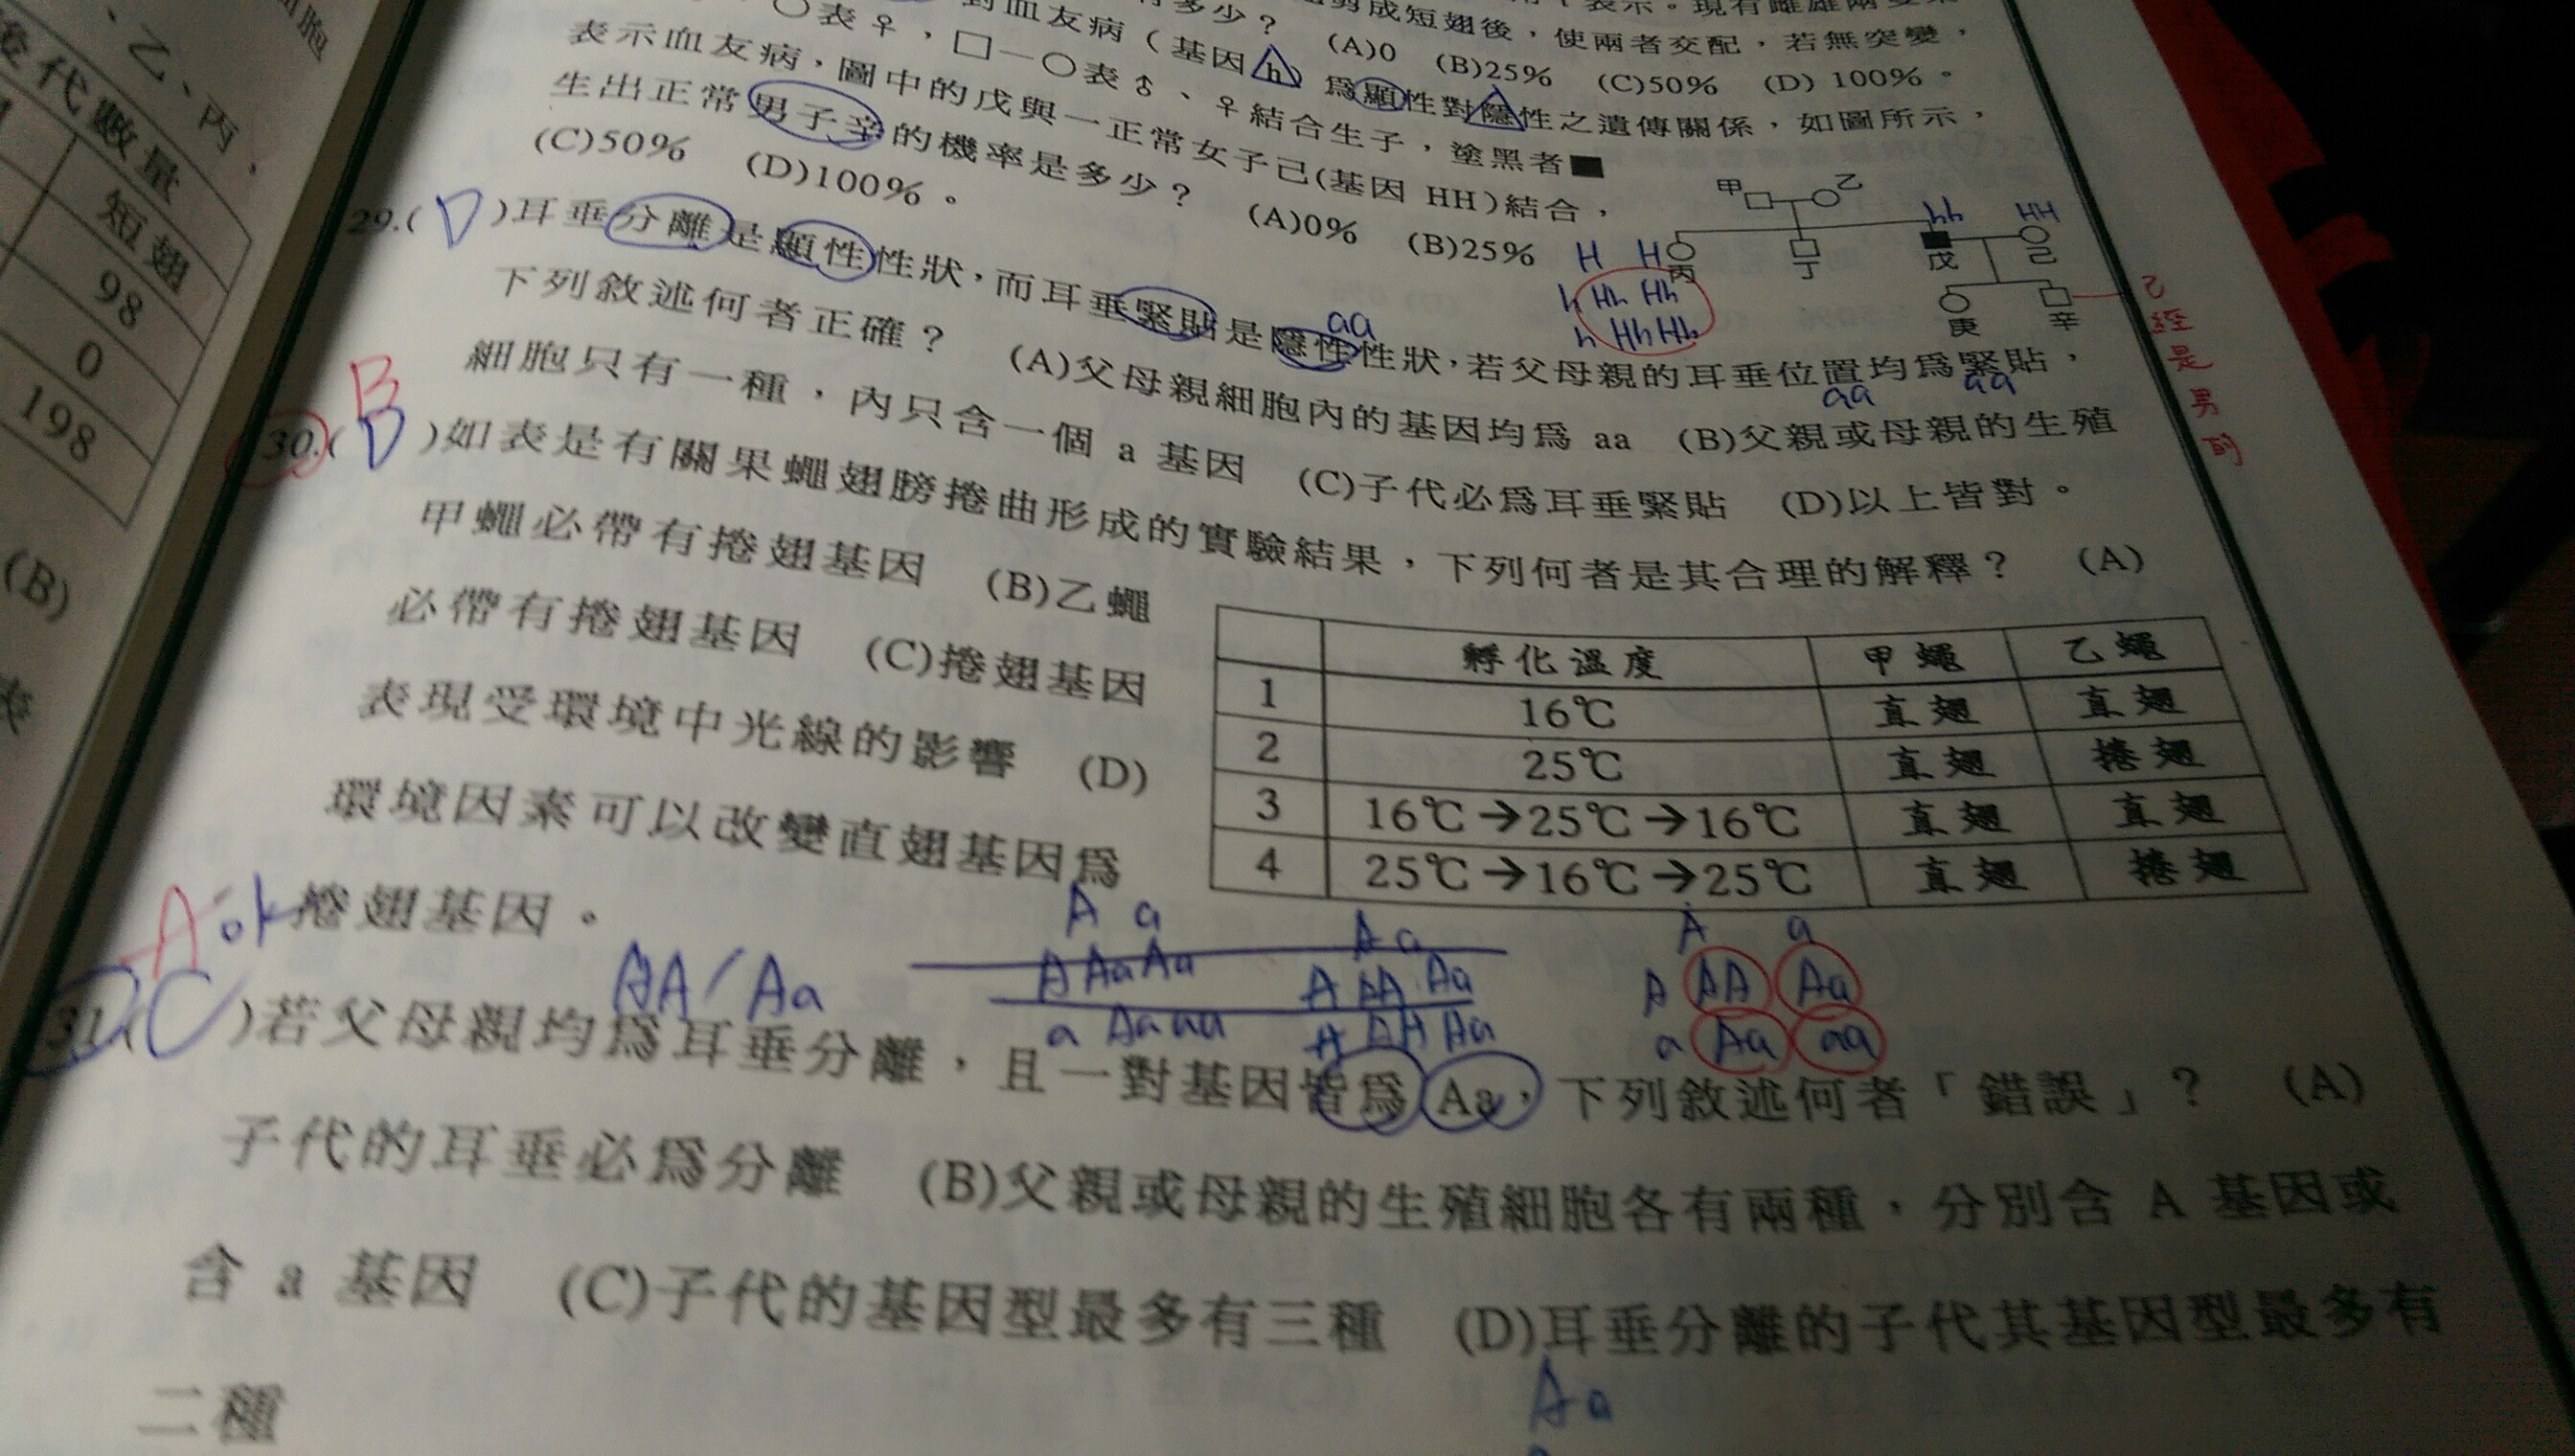 細胞
、乙、丙，
後代數量
短翅
98
0
198
(B)
表
剪成短翅後，使兩者交配，若無突變，
多少？ (A)0 (B)25% (C)50% (D) 100%。
對血友病（基因 h）為顯性對隱性之遺傳關係，如圖所示，
○表♀，□—○表♂、♀結合生子，塗黑者■
表示血友病，圖中的戊與一正常女子己(基因 HH)結合，
生出正常男子辛的機率是多少？ (A)0% (B)25%
(C)50% (D)100%。
甲 乙
hh HH
丙 丁 戊 己
庚 辛
H H
h Hh Hh
h Hh Hh
乙經是男的
29.( D )耳垂分離是顯性性狀，而耳垂緊貼是隱性性狀，若父母親的耳垂位置均為緊貼，
aa
aa aa
下列敘述何者正確？ (A)父母親細胞內的基因均為 aa (B)父親或母親的生殖
細胞只有一種，內只含一個 a 基因 (C)子代必為耳垂緊貼 (D)以上皆對。
B
30.( D )如表是有關果蠅翅膀捲曲形成的實驗結果，下列何者是其合理的解釋？ (A)
甲蠅必帶有捲翅基因 (B)乙蠅
必帶有捲翅基因 (C)捲翅基因
表現受環境中光線的影響 (D)
環境因素可以改變直翅基因為
捲翅基因。
孵化溫度 甲蠅 乙蠅
1 16℃ 直翅 直翅
2 25℃ 直翅 捲翅
3 16℃→25℃→16℃ 直翅 直翅
4 25℃→16℃→25℃ 直翅 捲翅
A ok
AA/Aa
A a
A Aa Aa
a Aa aa
A a
A AA Aa
A AA Aa
A a
A AA Aa
a Aa aa
31.( C )若父母親均為耳垂分離，且一對基因皆為 Aa，下列敘述何者「錯誤」？ (A)
子代的耳垂必為分離 (B)父親或母親的生殖細胞各有兩種，分別含 A 基因或
含 a 基因 (C)子代的基因型最多有三種 (D)耳垂分離的子代其基因型最多有
二種
Aa